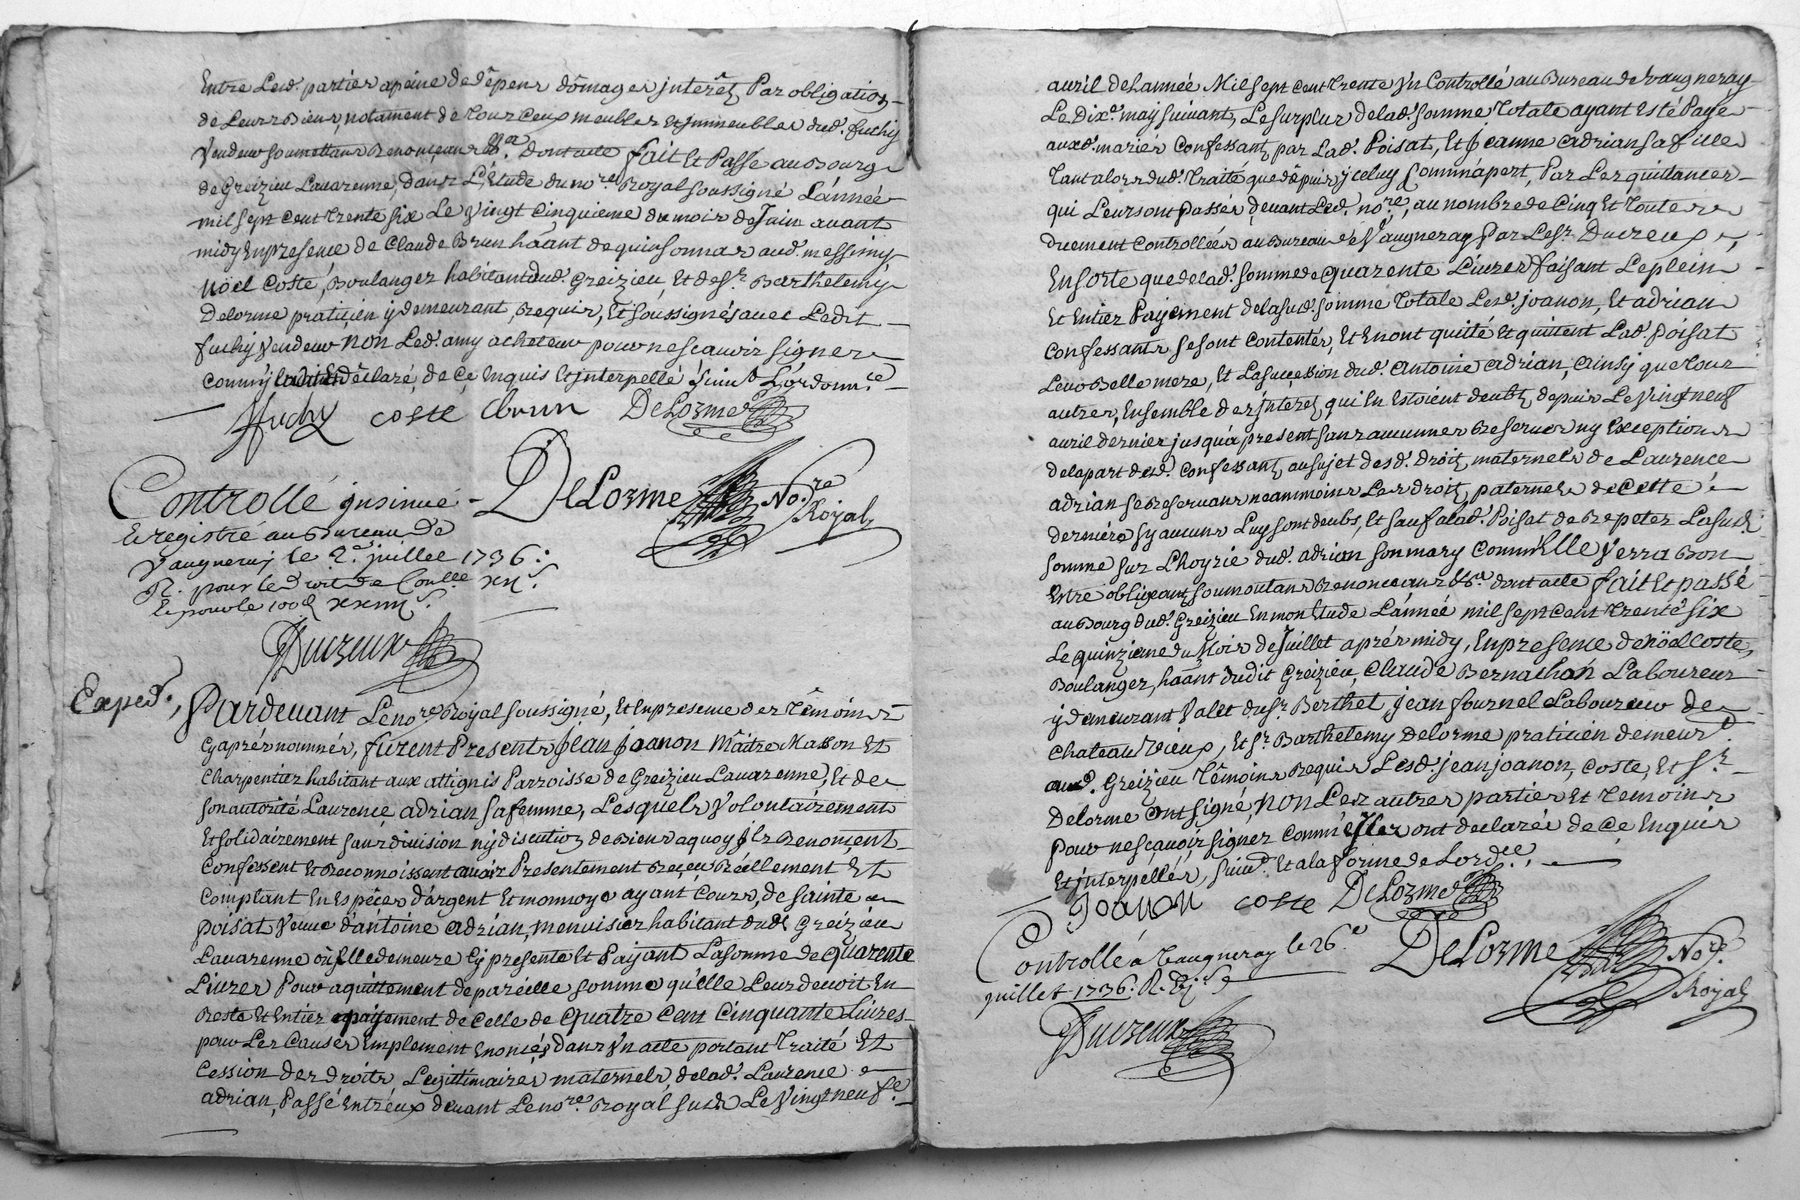 Entre Lesd. parties apeine de dêpens dômages jnterêts Par obligation
de Leurs Biens, notament de Tous Ceux meubles et jmmeubles dud. fuchy
Vendeur soumettans Renonçeans &a. Dont acte fait Et Passé au Bourg
de Greizieu Lavarenne, dans L'Etude du nore. Royal soussigné L'année
mil sept cent trente six Le vingt cinquieme du mois de Juin avant
midy En presence de Claude Brun hâant de quinsonnas aud. messimy
nöel Coste, Boulanger habitant dud. Greizieu, Et de Sr. Barthelemy
Delorme praticien y demeurant, Requis, Et soussignés avec Ledit
fuchy Vendeur non Led. amy acheteur pour ne sçavoir signer
comm'jl a dêclaré, de Ce Enquis Et jnterpellé suivt. L'ordonnce.
ffuchy coste cbrun DeLorme
Controllé jnsinué DeLorme Nore. Royal
Et registré au Bureau de
Vaugneray le 2e. juillet 1736:
R. pour le Droit de Conlle xii s.
Et pour le 100e xxiiii s.
Ducreux
Exped.,
Pardevant Le nore. Royal soussigné, Et En presence des Têmoins
Cy aprés nommés, furent Presents Jean Joanon Mâitre Masson Et
Charpentier habitant aux attignis Parroisse de Greizieu Lavarenne, Et de
son autorité Laurence adrian sa femme, Lesquels Volontairement
Et solidairement sans division ny discution de Biens aquoy jls Renonçent
Confessent Et Reconnoissent avoir Presentement Reçeu Réellement Et
Comptant En Espéces d'argent Et monnoye ayant Cours, de Sainte
poisat Veuve d'antoine adrian, menuisier habitant dud. Greizieu
Lavarenne où Elle demeure Cy presente Et Payant La somme de quarente
Livres Pour aquittement de paréille somme qu'elle Leur devoit En
Reste Et Entier payement de Celle de quatre Cent Cinquante Livres
pour Les Causes Emplement Enoncés dans Vn acte portant Traité Et
Cession des droits Legitimaires maternels de lad. Laurence
adrian, Passé Entr'eux devant Le nore. Royal susd. Le Vingt neufe.
avril de L'année Mil sept cent trente Vn Controllé au Bureau de Vaugneray
Le Dixe. may suivant, Le surplus de lad. somme Totale ayant Esté Payé
auxd. mariés Confessants par Lad. Poisat, Et Jeanne adrian sa fille
Tant alors dud. Traité que depuis jceluy Comm'apert, Par Les quittances
qui Leur sont Passés devant Led. nore., au nombre de Cinq Et Toutes
duement Controllées au Bureau de Vaugneray Par Le Sr. Ducreux,
En sorte que de lad. somme de quarente Livres faisant Le plein
Et Entier Payement de la susd. somme Totale Lesd. joanon, Et adrian
Confessants se sont Contentés, Et En ont quitté Et quittent Lad. Poisat
Leur Belle mere, Et La succession dud. Antoine adrian, ainsy que Tous
autres, Ensemble des jnterets qui En Estoient deubts depuis Le Vingt neuf
avril dernier jusqu'a present sans aucunnes Reserves ny Exceptions
de la part desd. Confessants au sujet desd. Droits maternels de Laurence
adrian se Reservans neanmoins Les droits paternels de Cette
derniére sy aucuns Luy sont deubs, Et sauf a lad. Poisat de Repeter La susd.
somme sur L'hoyrie dud. adrian son mary Comm'Elle Verra Bon
Estre obligeants soumettans Renonceans &a. dont acte fait Et passé
au Bourg dud. Greizieu En mon Etude L'année mil sept cent trente six
Le quinzieme du Mois de Juillet aprés midy, En presence de nöel Coste,
Boulanger, hâant dudit Greizieu, Claude Bernachon Laboureur
y demeurant Valet du Sr. Berthet, jean fournel Laboureur de
Chateau Vieux, Et Sr. Barthelemy Delorme praticien demeurt.
aud. Greizieu Têmoins Requis Lesd. jean joanon, Coste, Et Sr.
Delorme ont signé, non Les autres parties Et Temoins
pour ne sçavoir signer Comm'jls ont declarés de Ce Enquis
Et jnterpellés, suivt. Et a la forme de L'ordce.
Joanon coste DeLorme
Controllé a Vaugneray le 26e. DeLorme Nore. Royal
juillet 1736. R.
Ducreux